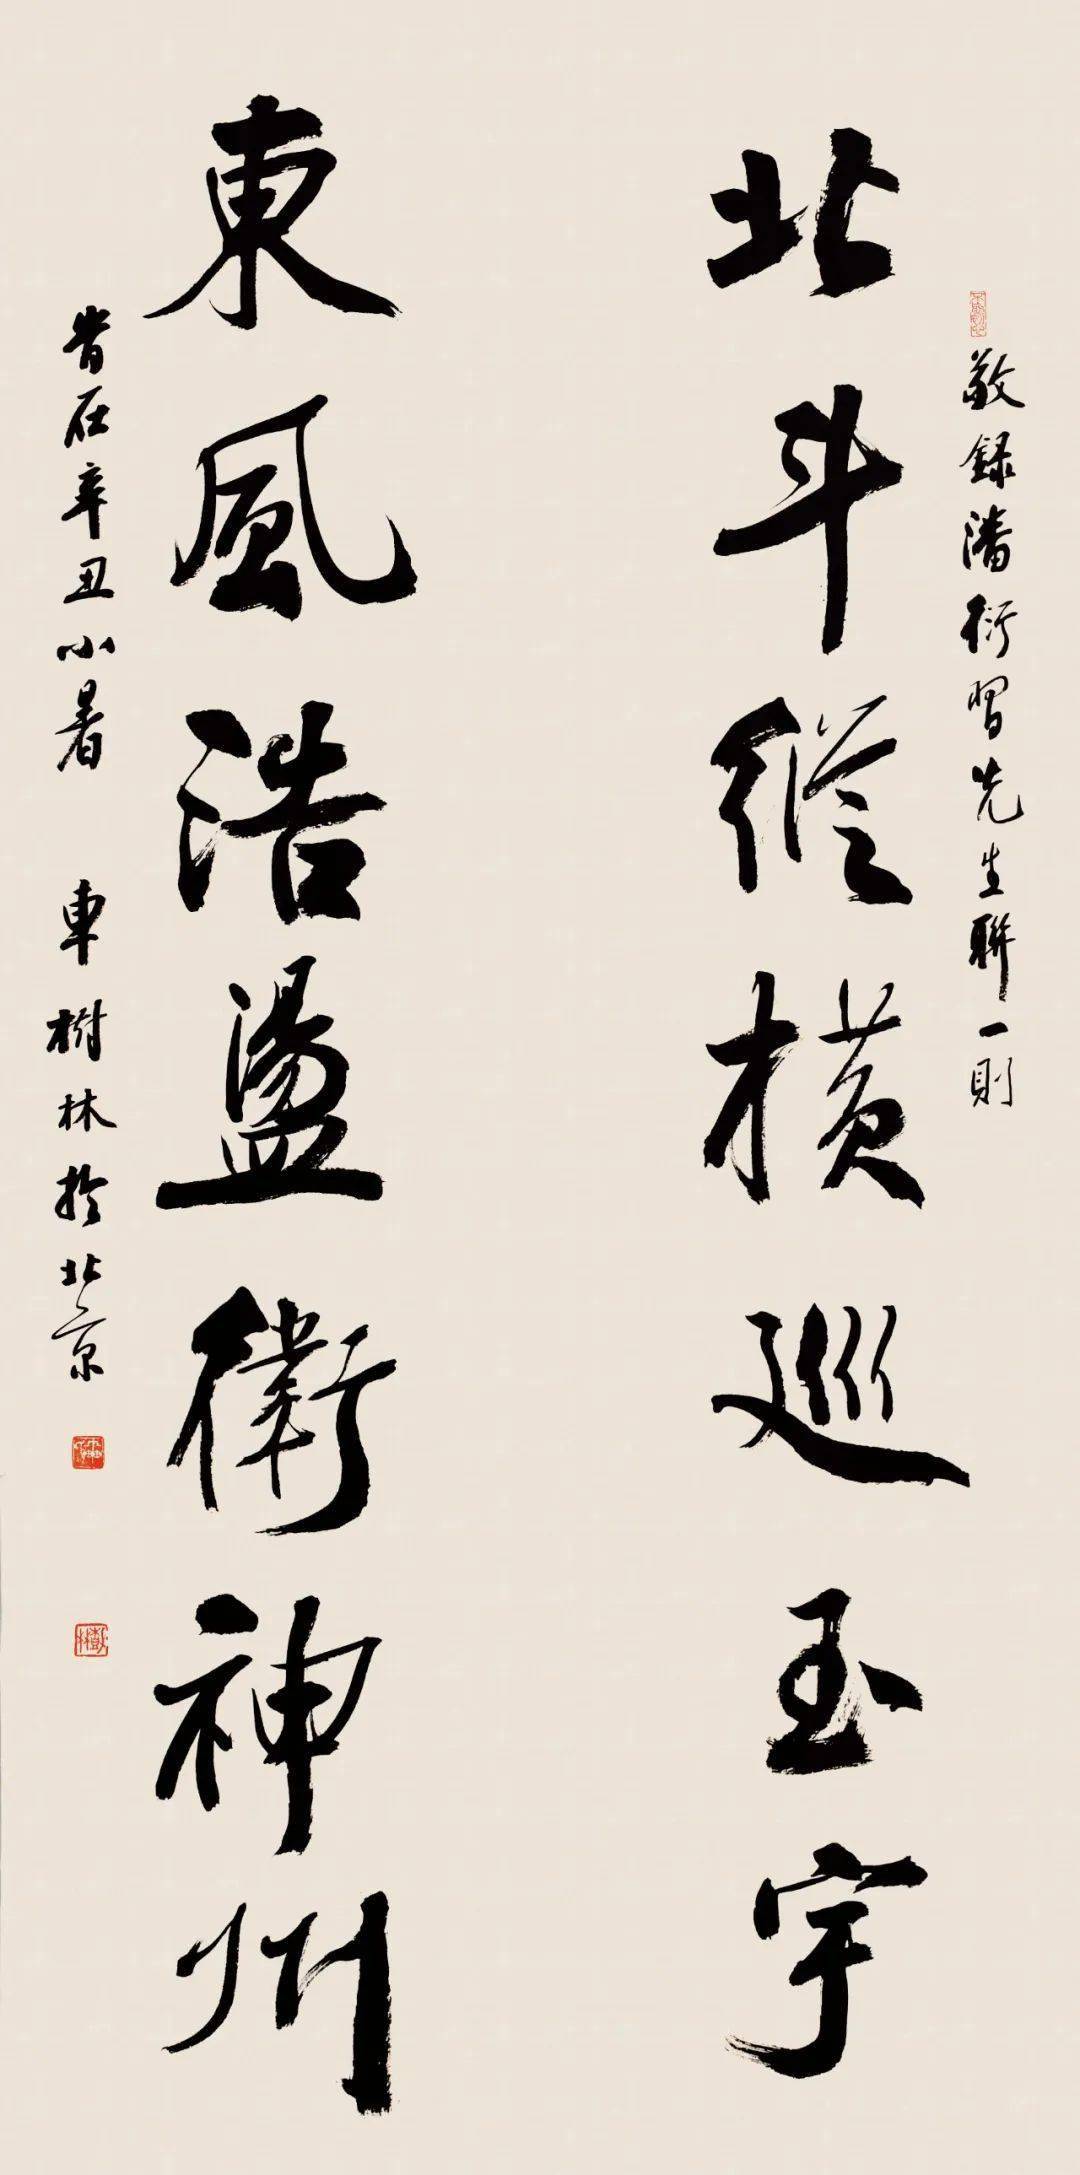 敬録潘衍習先生聯一則
北斗縱横巡玉宇
東風浩盪衛神州
旹在辛丑小暑 車樹林於北京
樹林